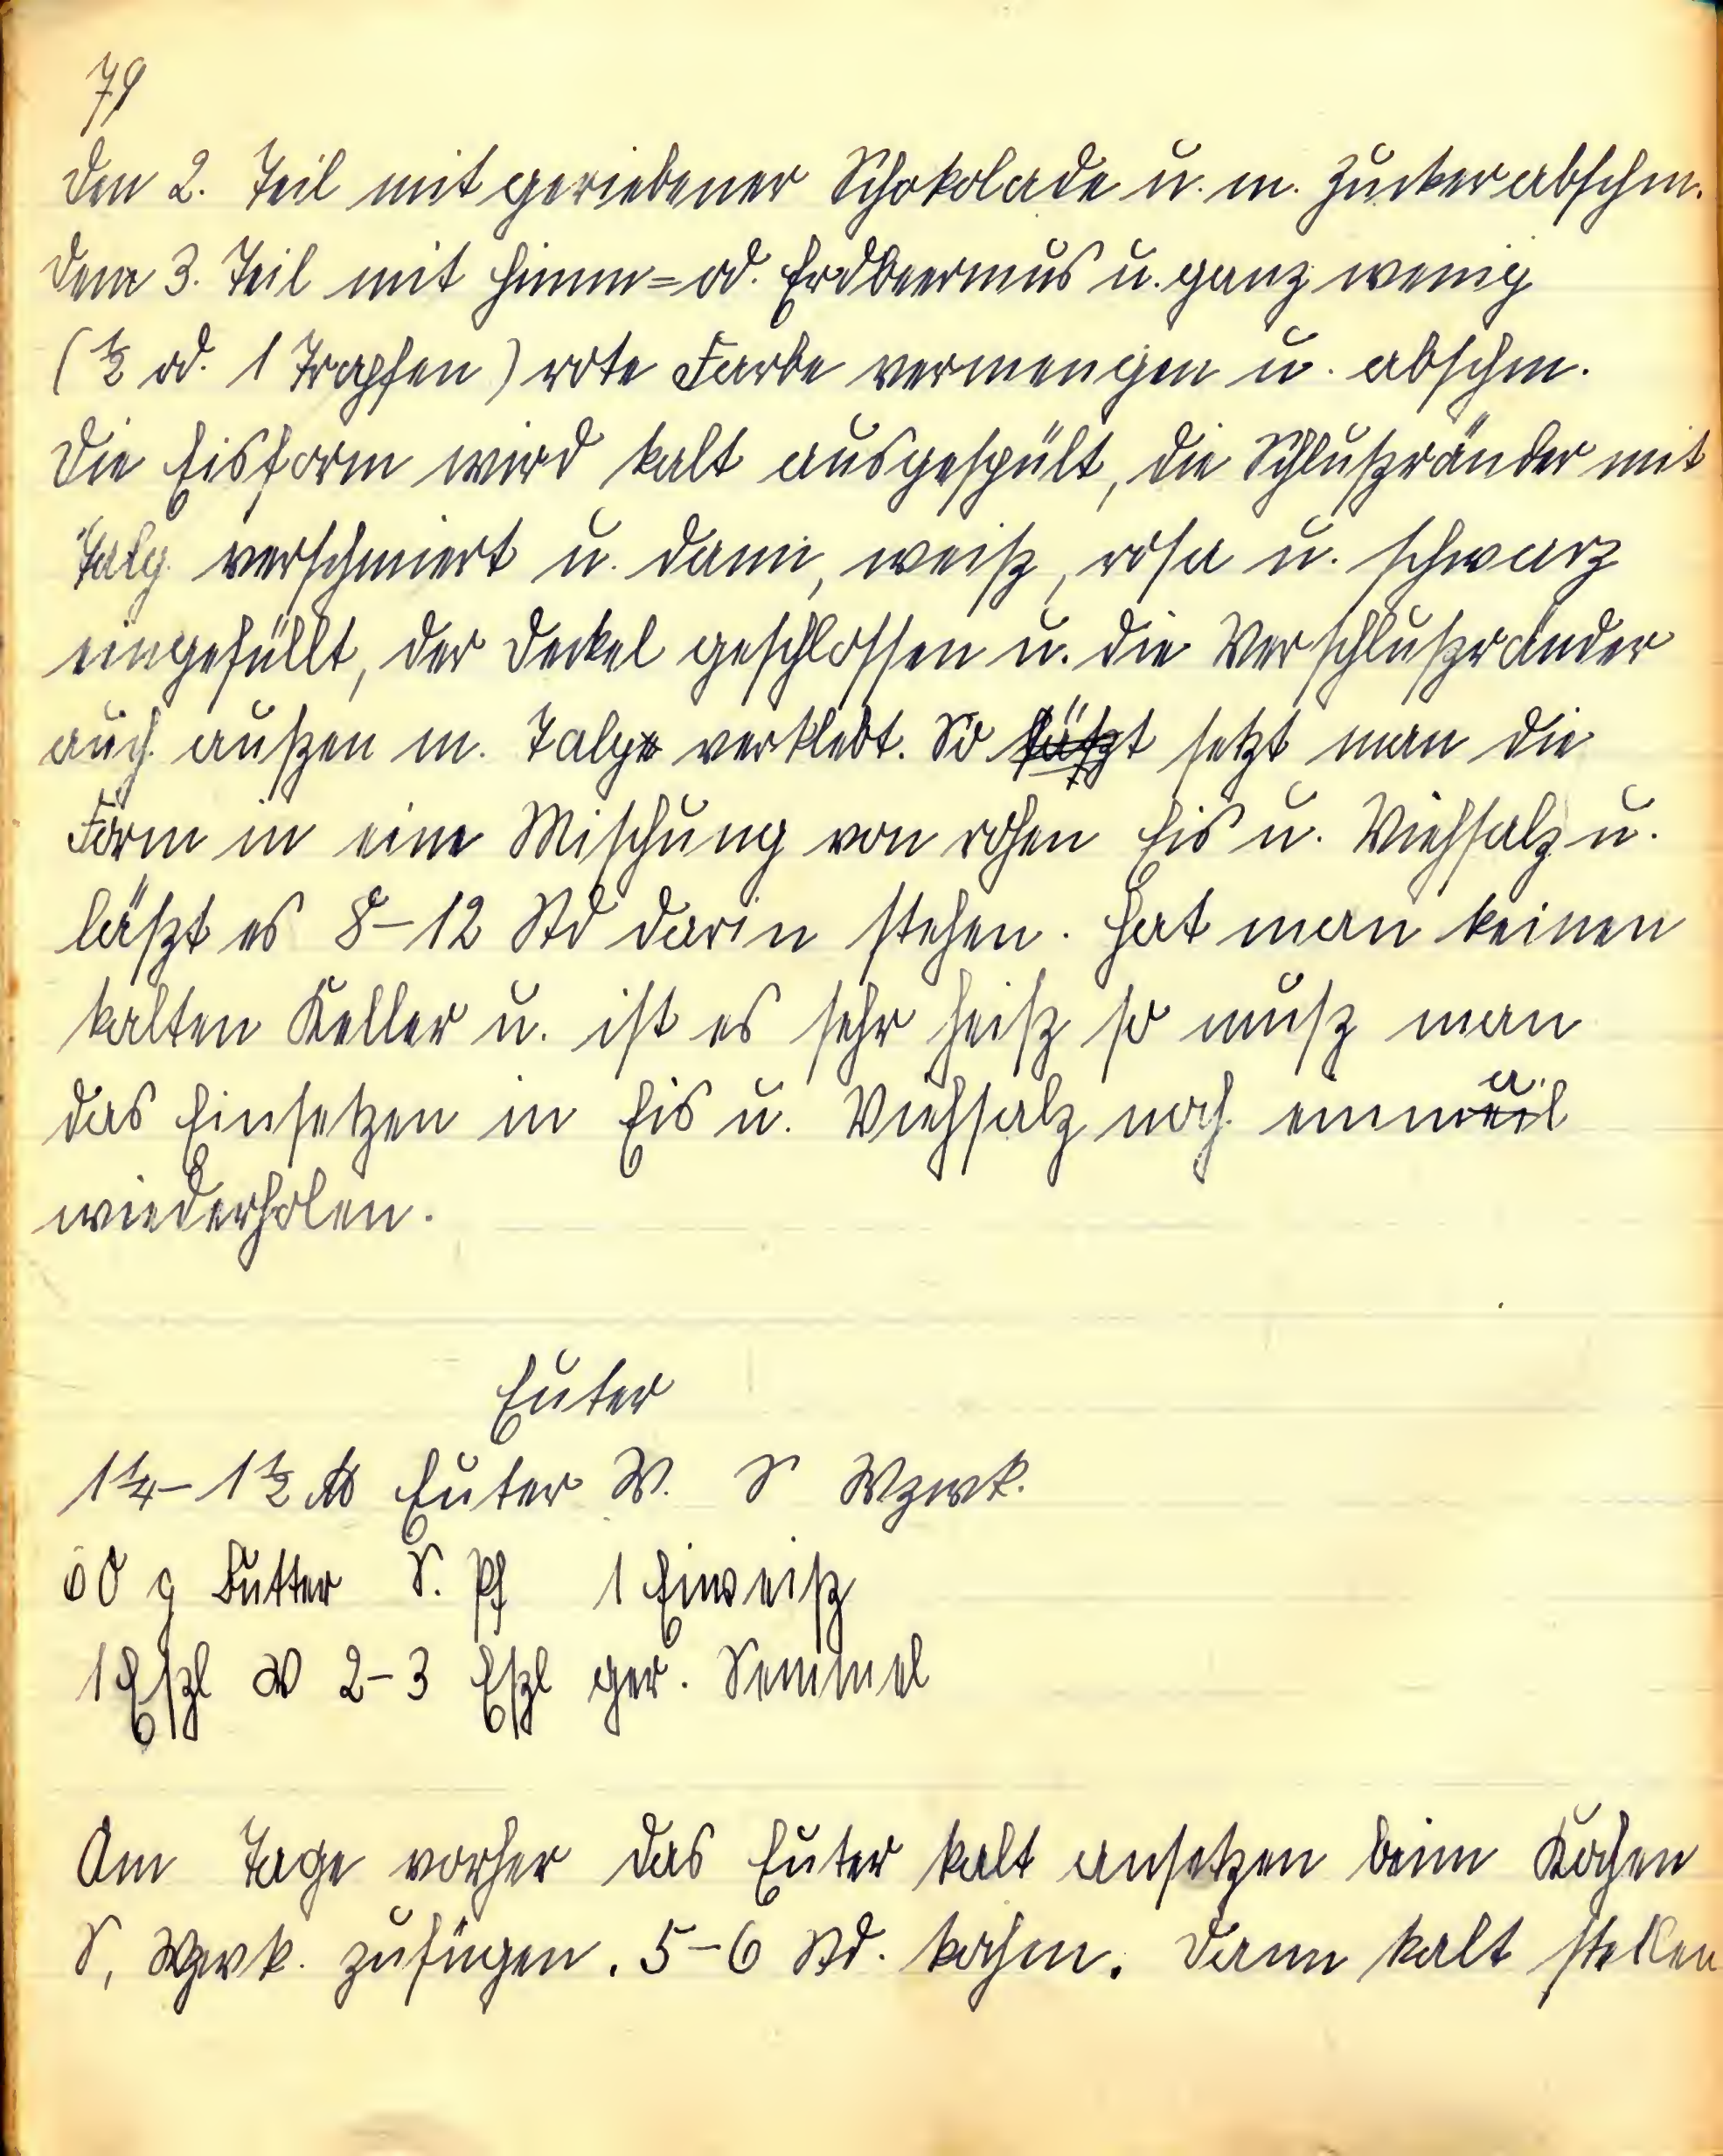 79
den 2. Teil mit geriebener Schokolade u. m. Zucker abschm.
dem 3. Teil mit Himm= od. Erdbeermus u. ganz wenig
(½ od. 1 Tropfen) rote Farbe vermengen u. abschm.
Die Eisform wird kalt ausgespült, die Schlußränder mit
Talg verschmiert u. dann, weiß, rosa u. schwarz
eingefüllt, der Deckel geschlossen u. die Verschlußränder
auch außen m. Talg verklebt. So setzt man die
Form in eine Mischung von rohen Eis u. Viehsalz u.
läßt es 8–12 Std darin stehen. Hat man keinen
kalten Keller u. ist es sehr heiß so muß man
das Einsetzen in Eis u. Viehsalz noch einmal
wiederholen.
Euter
1¼–1½ ℔ Euter W. S Wzwk.
60 g Butter S. Pf 1 Einweiß
1 Eßl W 2–3 Eßl ger. Semmel
Am Tage vorher das Euter kalt ansetzen beim Kochen
S, Wzwk. zufügen. 5–6 Std. kochen. Dann kalt stellen